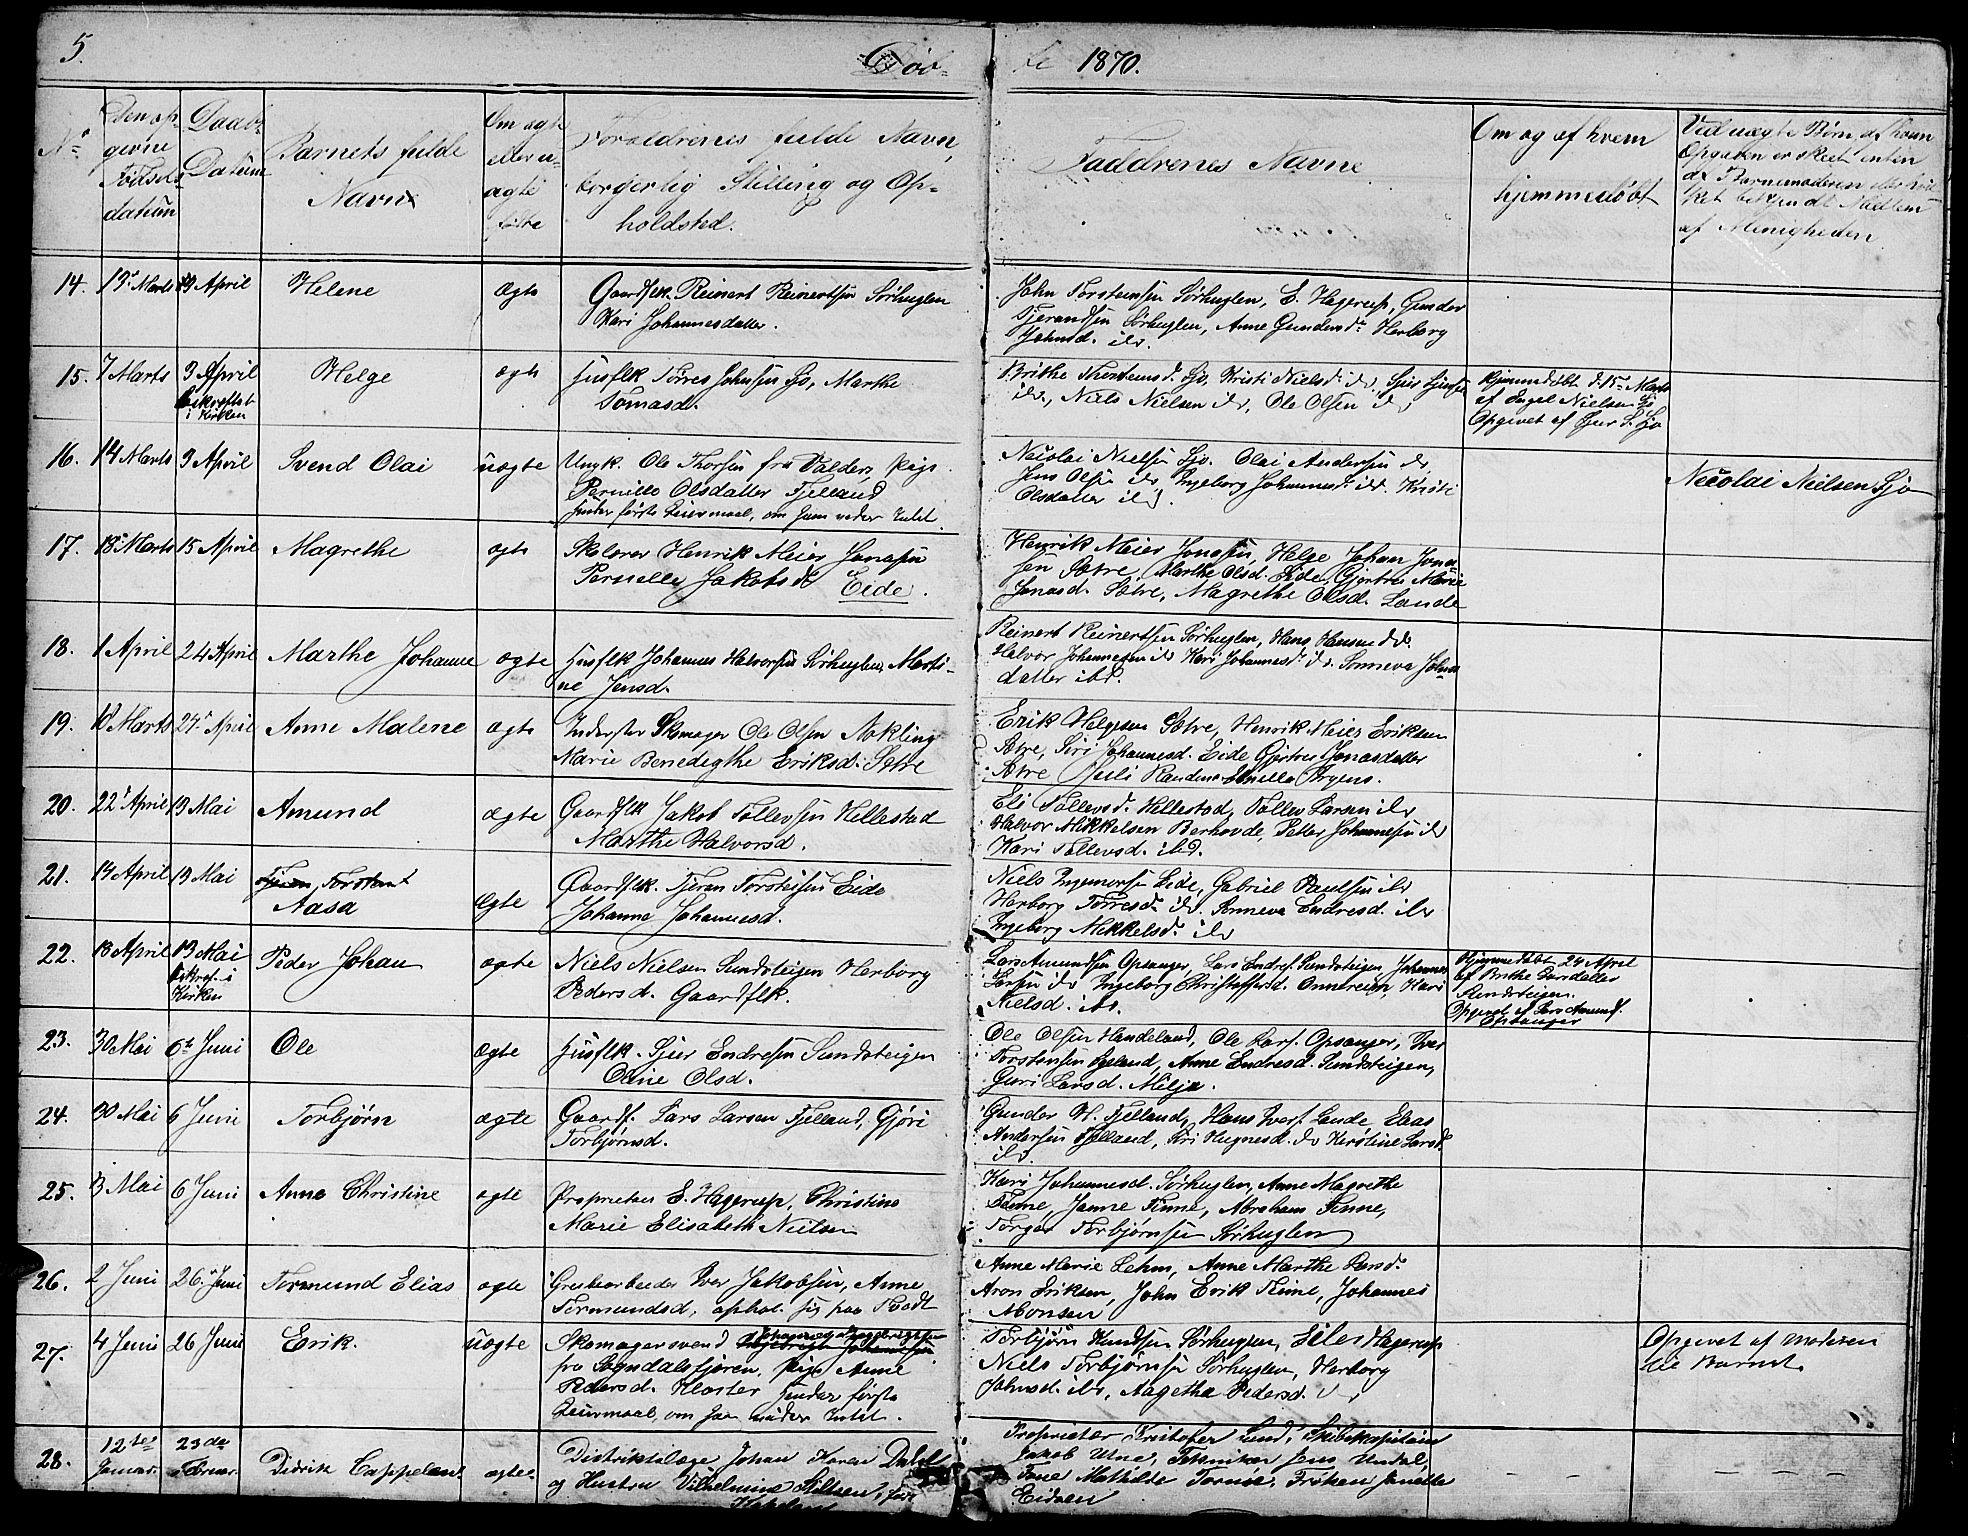 5.
Døb-
te 1870.
No
Den op-
givne
Fødsels
datum
Daabs
Datum
Barnets fulde
Navn
Om ægte
eller u-
ægte
født
Forældrenes fulde Navn,
borgerlig Stilling og Op-
holdsted.
Faddrenes Navne
Om og af hvem
hjemmedøbt
Ved uægte Børn, af hvem
Opgaven er skeet enten
af Barnemoderen eller hvil
ket bekjendt Medlem
af Menigheden
14.
19 Marts
April
Helene
ægte
Gaardflk. Reinert Reinertsen Sørhuglen
Kari Johannesdatter.
John Torsteinsen Sørhuglen, E. Hagerup, Gunder
Tjerandsen Sørhuglen, Anne Gundersd. Herborg
Johnsd. ibd.
15.
7 Marts
3 April
bekræftet
i Kirken
Helge
ægte
Husflk Tørres Johnsen Sjo, Marthe
Tomasd.
Brithe Thorstensd. Sjo, Kristi Nielsd. ibd. Sjur Sjursen
ibd., Niels Nielsen ibd, Ole Olsen ibd
Hjemmedøbt d. 15 Marts
af Engel Nielsen Sjo
Opgivet af Sjur S. Sjo
16.
14 Marts
3 April
Svend Olai
uægte
Ungk. Ole Thorsen fra Valders, Pige
Pernille Olsdatter Fjelland
hendes første Leiermaal, om ham vides Intet.
Nicolai Nielsen Sjo. Olai Andersen ibd,
Jens Olsen ibd, Ingeborg Johannesd. ibd. Kristi
Olsdatter ibd.
Nicolai Nielsen Sjo
17.
18 Marts
15 April
Magrethe
ægte
Skolærer Henrik Meier Jonasen
Pernelle Jakobsd. Eide.
Henrik Meier Jonasen, Helge Johan Jona-
sen Sætre, Marthe Olsd. Eide, Gjertru Marie
Jonasd. Sætre, Magrethe Olsd. Lande
18.
1 April
24 April
Marthe Johanne
ægte
Husflk Johannes Halvorsen Sørhuglen, Marti-
ne Jensd.
Reinert Reinertsen Sørhuglen, Hans Hansen ibd.
Halvor Johannesen ibd Kari Johannesd. ibd. Sonneva Johns
datter ibd.
19.
10 Marts
24 April
Anne Malene
ægte
Inderster Skomager Ole Olsen Nøkling
Marie Benedigthe Eriksd. Sætre
Erik Helgesen Sætre, Henrik Meier Eriksen
Sætre, Siri Johannesd. Eide Gjertru Jonasdatter
Sætre
20.
22 April
19 Mai
Amund
ægte
Gaardflk Jakob Tollevsen Hillestad
Marthe Halvorsd.
Eli Tollevsd. Hillestad, Tollev Larsen ibd
Halvor Mikkelsen Berhovde, Peter Johannesen ibd
Kari Tollevsd. ibd.
21.
14 April
19 Mai
Aasa
ægte
Gaardflk. Tjeran Torsteinsen Eide
Johanne Johannesd.
Niels Ingemorsen Eide, Gabriel Paulsen ibd
Herborg Torresd. ibd. Sonneva Endresd. ibd
Ingeborg Mikkelsd. ibd
22.
13 April
19 Mai
bekræf. i
Kirken
Peder Johan
ægte
Niels Nielsen Sundsteigen Herborg
Pedersd. Gaardflk.
Lars Amundsen Opsanger, Lars Endres. Sundsteigen, Johannes
Larsen ibd Ingeborg Christoffersd. Onnereim, Kari
Nielsd. ibd.
Hjemmedøbt 24 April
af Brithe Larsdatter
Sundsteigen.
Opgivet af Lars Amunds.
Opsanger
23.
30 Mai
6te Juni
Ole
ægte
Husflk. Sjur Endresen Sundsteigen
Oline Olsd.
Ole Olsen Handeland, Ole Lars. Opsanger, Iver
Torstensen Egeland, Anne Endresd. Sundsteigen,
Guri Larsd. Milja.
24.
30 Mai
6 Juni
Torbjørn
ægte
Gaardf. Lars Larsen Fjelland, Gjøri
Torbjørnsd.
Gunder H. Fjelland, Hans Ivers. Lande, Elias
Andersen Fjelland, Siri Hugnesd. ibd Kirstine Larsd.
ibd
25.
3 Mai
6 Juni
Anne Christine
ægte
Proprietær E. Hagerup, Christine
Marie Elisabeth Nielsen
Kari Johannesd. Sørhuglen, Anne Magrethe
Finne, Janne Finne, Abraham Finne,
Torger Torbjørnsen Sørhuglen
26.
2 Juni
26 Juni
Tormund Elias
ægte
Grubearbeider Iver Jakobsen, Anne
Tormundsd. ophol. sig paa Stodt
Anne Marie Lehm, Anne Marthe Larsd.
Aron Eriksen, John Erik Teime, Johannes
Monsen
27.
4 Juni
26 Juni
Erik.
uægte
Skomagersvend
fra Sogndalsfjøren, Pige Anne
Pedersd. Kloster hendes første
Leiermaal, om ham vides Intet.
Torbjørn Knudsen Sørhuglen, Eiler Hagerup
Niels Torbjørnsen Sørhuglen, Herborg
Johnsd. ibd, Aagetha Pedersd.
Opgivet af Moderen
til Barnet
28.
12te
Januar.
23de
Februar.
Didrik Cappelen
ægte
Distriktslæge Johan Koren Dahl
og Hustru Vilhelmine Stilsen, født
Proprietær Kristofer Lund, Skibskaptein
Jakob Utne, Tekniker Jens Undal,
Frue Mathilde Tornøe, Frøken Janette
Eidsen